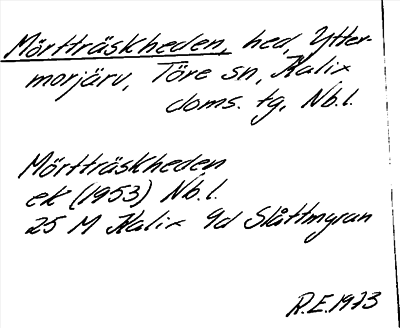 Mörtträskheden, hed, Ytter-
morjärv, Töre sn, Kalix
doms. tg, Nb.l.
Mörtträskheden
ek (1953) Nb.l.
25 M Kalix 9d Slåttmyran
R.E. 1973